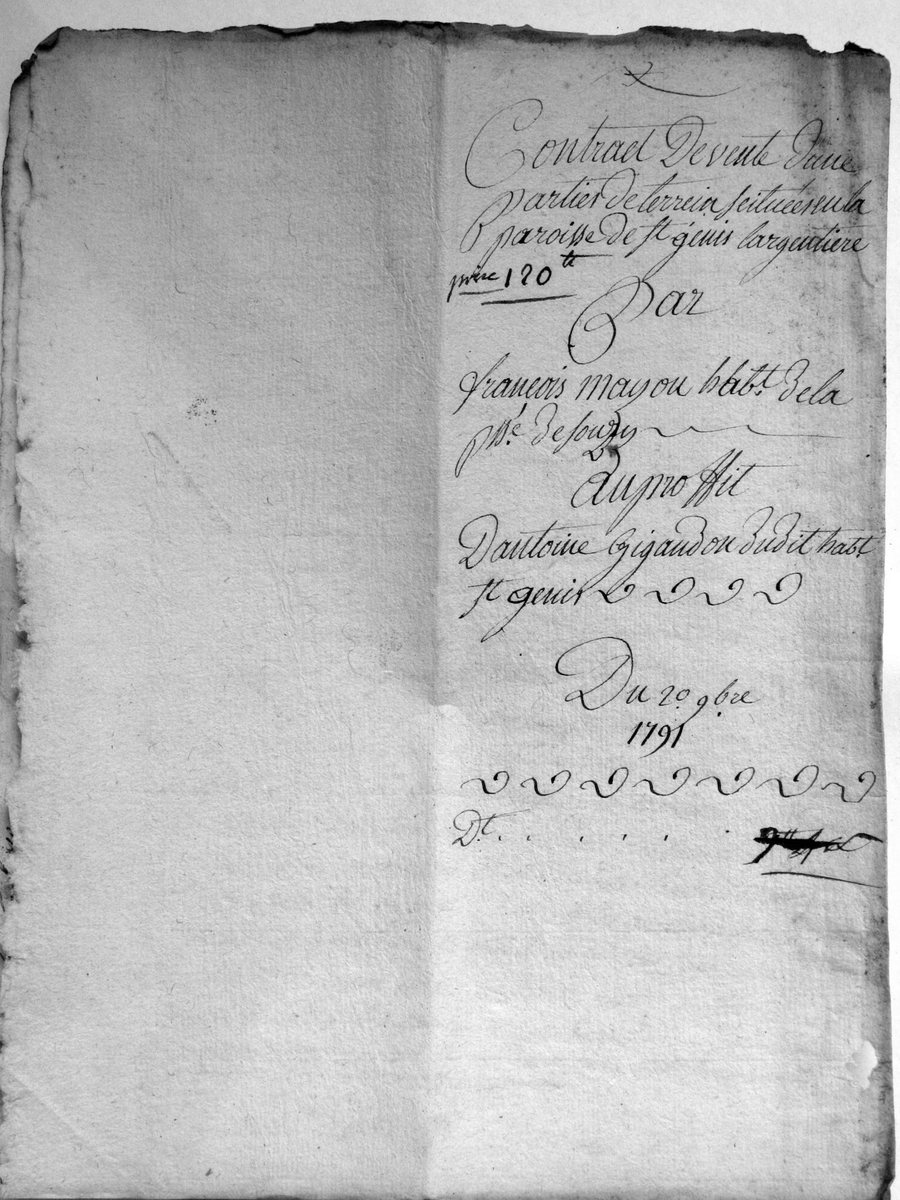 Contract De vente dune
partier de terrein scituées en la
paroisse de st genis largentiere
prix 120 tt
Par
françois mayou habt. de la
psse. de souzy
Au proffit
Dantoine Gigaudon dudit habt
st genis
Du 20 9bre
1791
Dt. . . . . . .